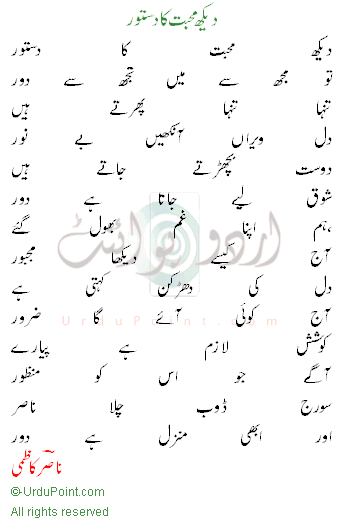 دیکھ محبت کا دستور
دیکھ محبت کا دستور
تو مجھ سے میں تجھ سے دور
تنہا تنہا پھرتے ہیں
دل ویراں آنکھیں بے نور
دوست بچھڑتے جاتے ہیں
شوق لیے جاتا ہے دور
ہم اپنا غم بھول گئے
آج کسے دیکھا مجبور
دل کی دھڑکن کہتی ہے
آج کوئی آئے گا ضرور
کوشش لازم ہے پیارے
آگے جو اس کو منظور
سورج ڈوب چلا ناصر
اور ابھی منزل ہے دور
ناصر کاظمی
اردو پوائنٹ
UrduPoint.com
©UrduPoint.com
All rights reserved